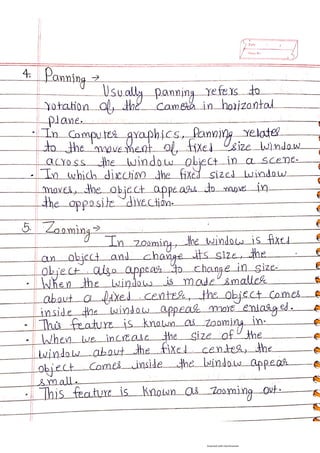 4. Panning →
Usually panning refers to
rotation of, the camera in horizontal
plane.
• In Computer graphics, Panning relates
to the movement of, fixed size window
across the window object in a scene.
• In which direction the fixed sized window
moves, the object appears to move in
the opposite direction.
5. Zooming →
In zooming, the window is fixed
an object and change its size, the
object also appear to change in size.
• When the window is made smaller
about a fixed center, the object comes
inside the window appear more enlarged.
• This feature is known as zooming in.
• When we increase the size of the
window about the fixed center, the
object comes inside the window appear
small.
• This feature is known as zooming out.